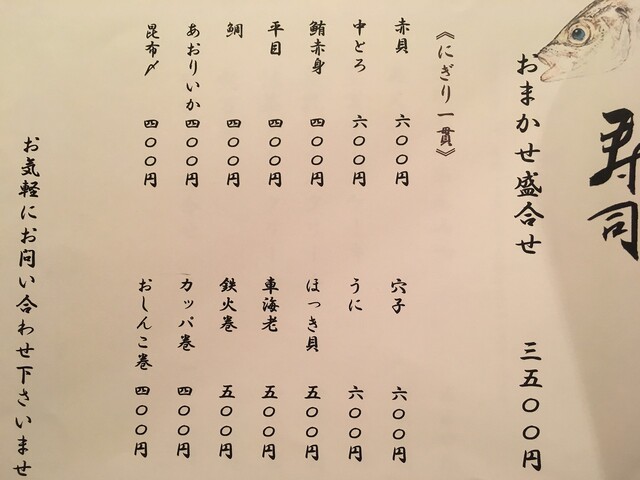 寿司
おまかせ盛合せ 三五〇〇円
《にぎり一貫》
赤貝 六〇〇円
中とろ 六〇〇円
鮪赤身 四〇〇円
平目 四〇〇円
鯛 四〇〇円
あおりいか 四〇〇円
昆布〆 四〇〇円
穴子 六〇〇円
うに 六〇〇円
ほっき貝 五〇〇円
車海老 五〇〇円
鉄火巻 五〇〇円
カッパ巻 四〇〇円
おしんこ巻 四〇〇円
お気軽にお問い合わせ下さいませ